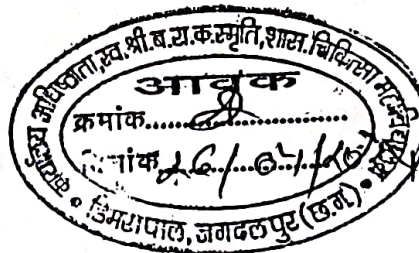 कार्यालय अधिष्ठाता,स्व.श्री.ब.रा.क.स्मृति,शास.चिकित्सा महाविद्यालय
आवक
क्रमांक..........................
दिनांक
डिमरापाल, जगदलपुर (छ.ग.)